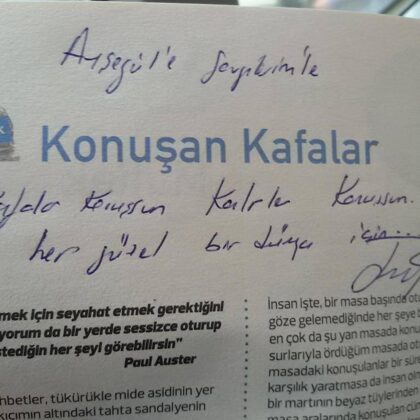 Ayşegül'e sevgilerimle
Konuşan Kafalar
konuşsun kalpler konuşsun.
her güzel bir dünya için...
mek için seyahat etmek gerektiğini
yorum da bir yerde sessizce oturup
stediğin her şeyi görebilirsin"
Paul Auster
hbetler, tükürükle mide asidinin yer
kıcımın altındaki tahta sandalyenin
İnsan işte, bir masa başında ot
göze gelemediğinde her şeye b
en çok da şu yan masada konuş
surlarıyla ördüğüm masada ot
masadaki konuşulanlar bir sür
karşılık yaratmasa da insan olm
bir martının beyaz tüylerinden
masa aralarında konuşulan